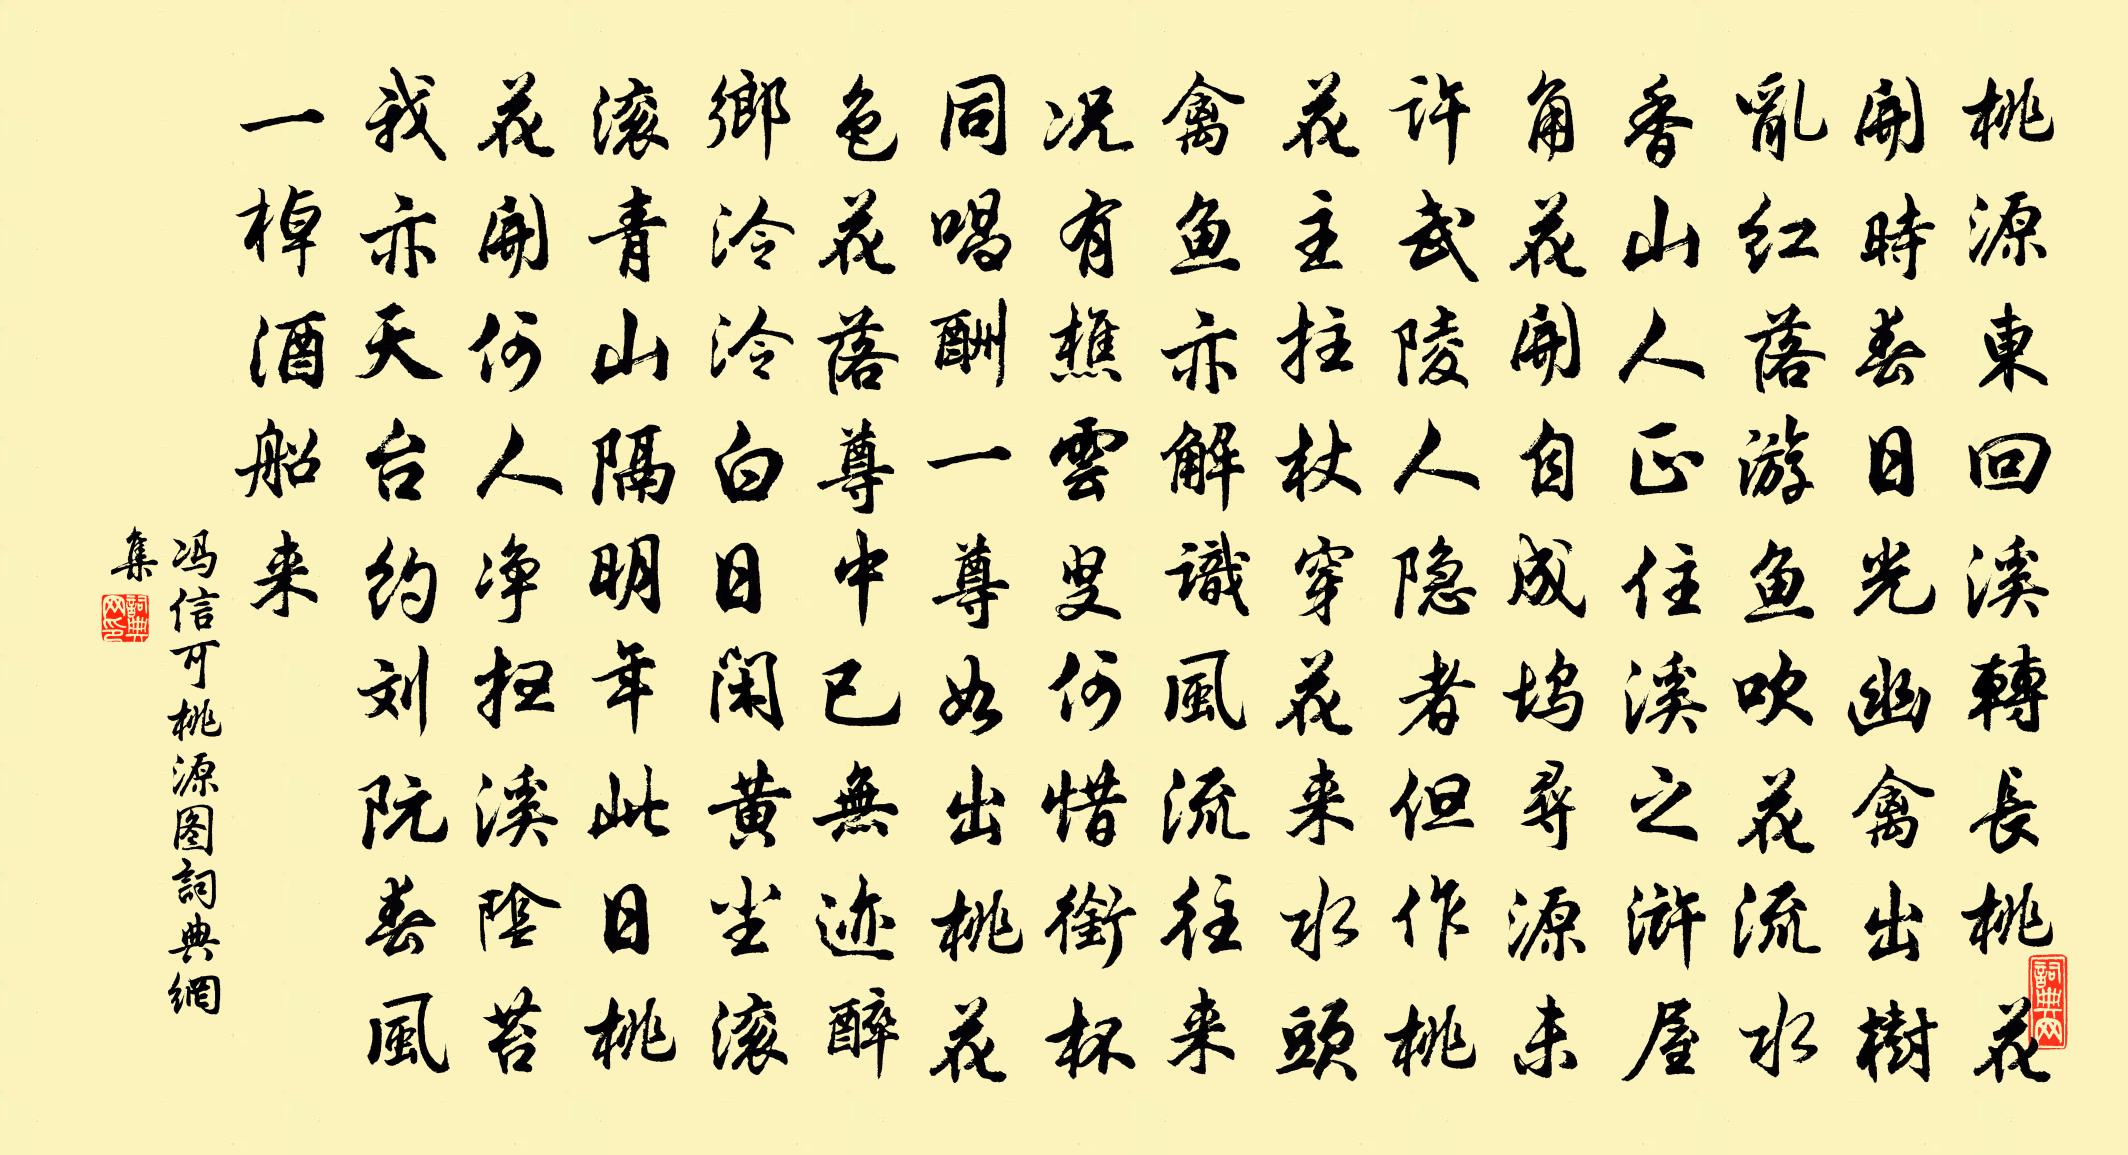 桃源東回溪轉長桃花
開時春日光幽禽出樹
亂紅落游魚吹花流水
香山人正住溪之滸屋
角花開自成塢尋源未
許武陵人隐者但作桃
花主拄杖穿花来水頭
禽魚亦解識風流往来
况有樵雲叟何惜銜杯
同唱酬一尊如出桃花
色花落尊中已無迹醉
鄉泠泠白日閑黄坐滚
滚青山隔明年此日桃
花開何人净扫溪陰苔
我亦天台約刘阮春風
一棹酒船来
冯信可桃源图詞典網
集
詞典网印
詞典网